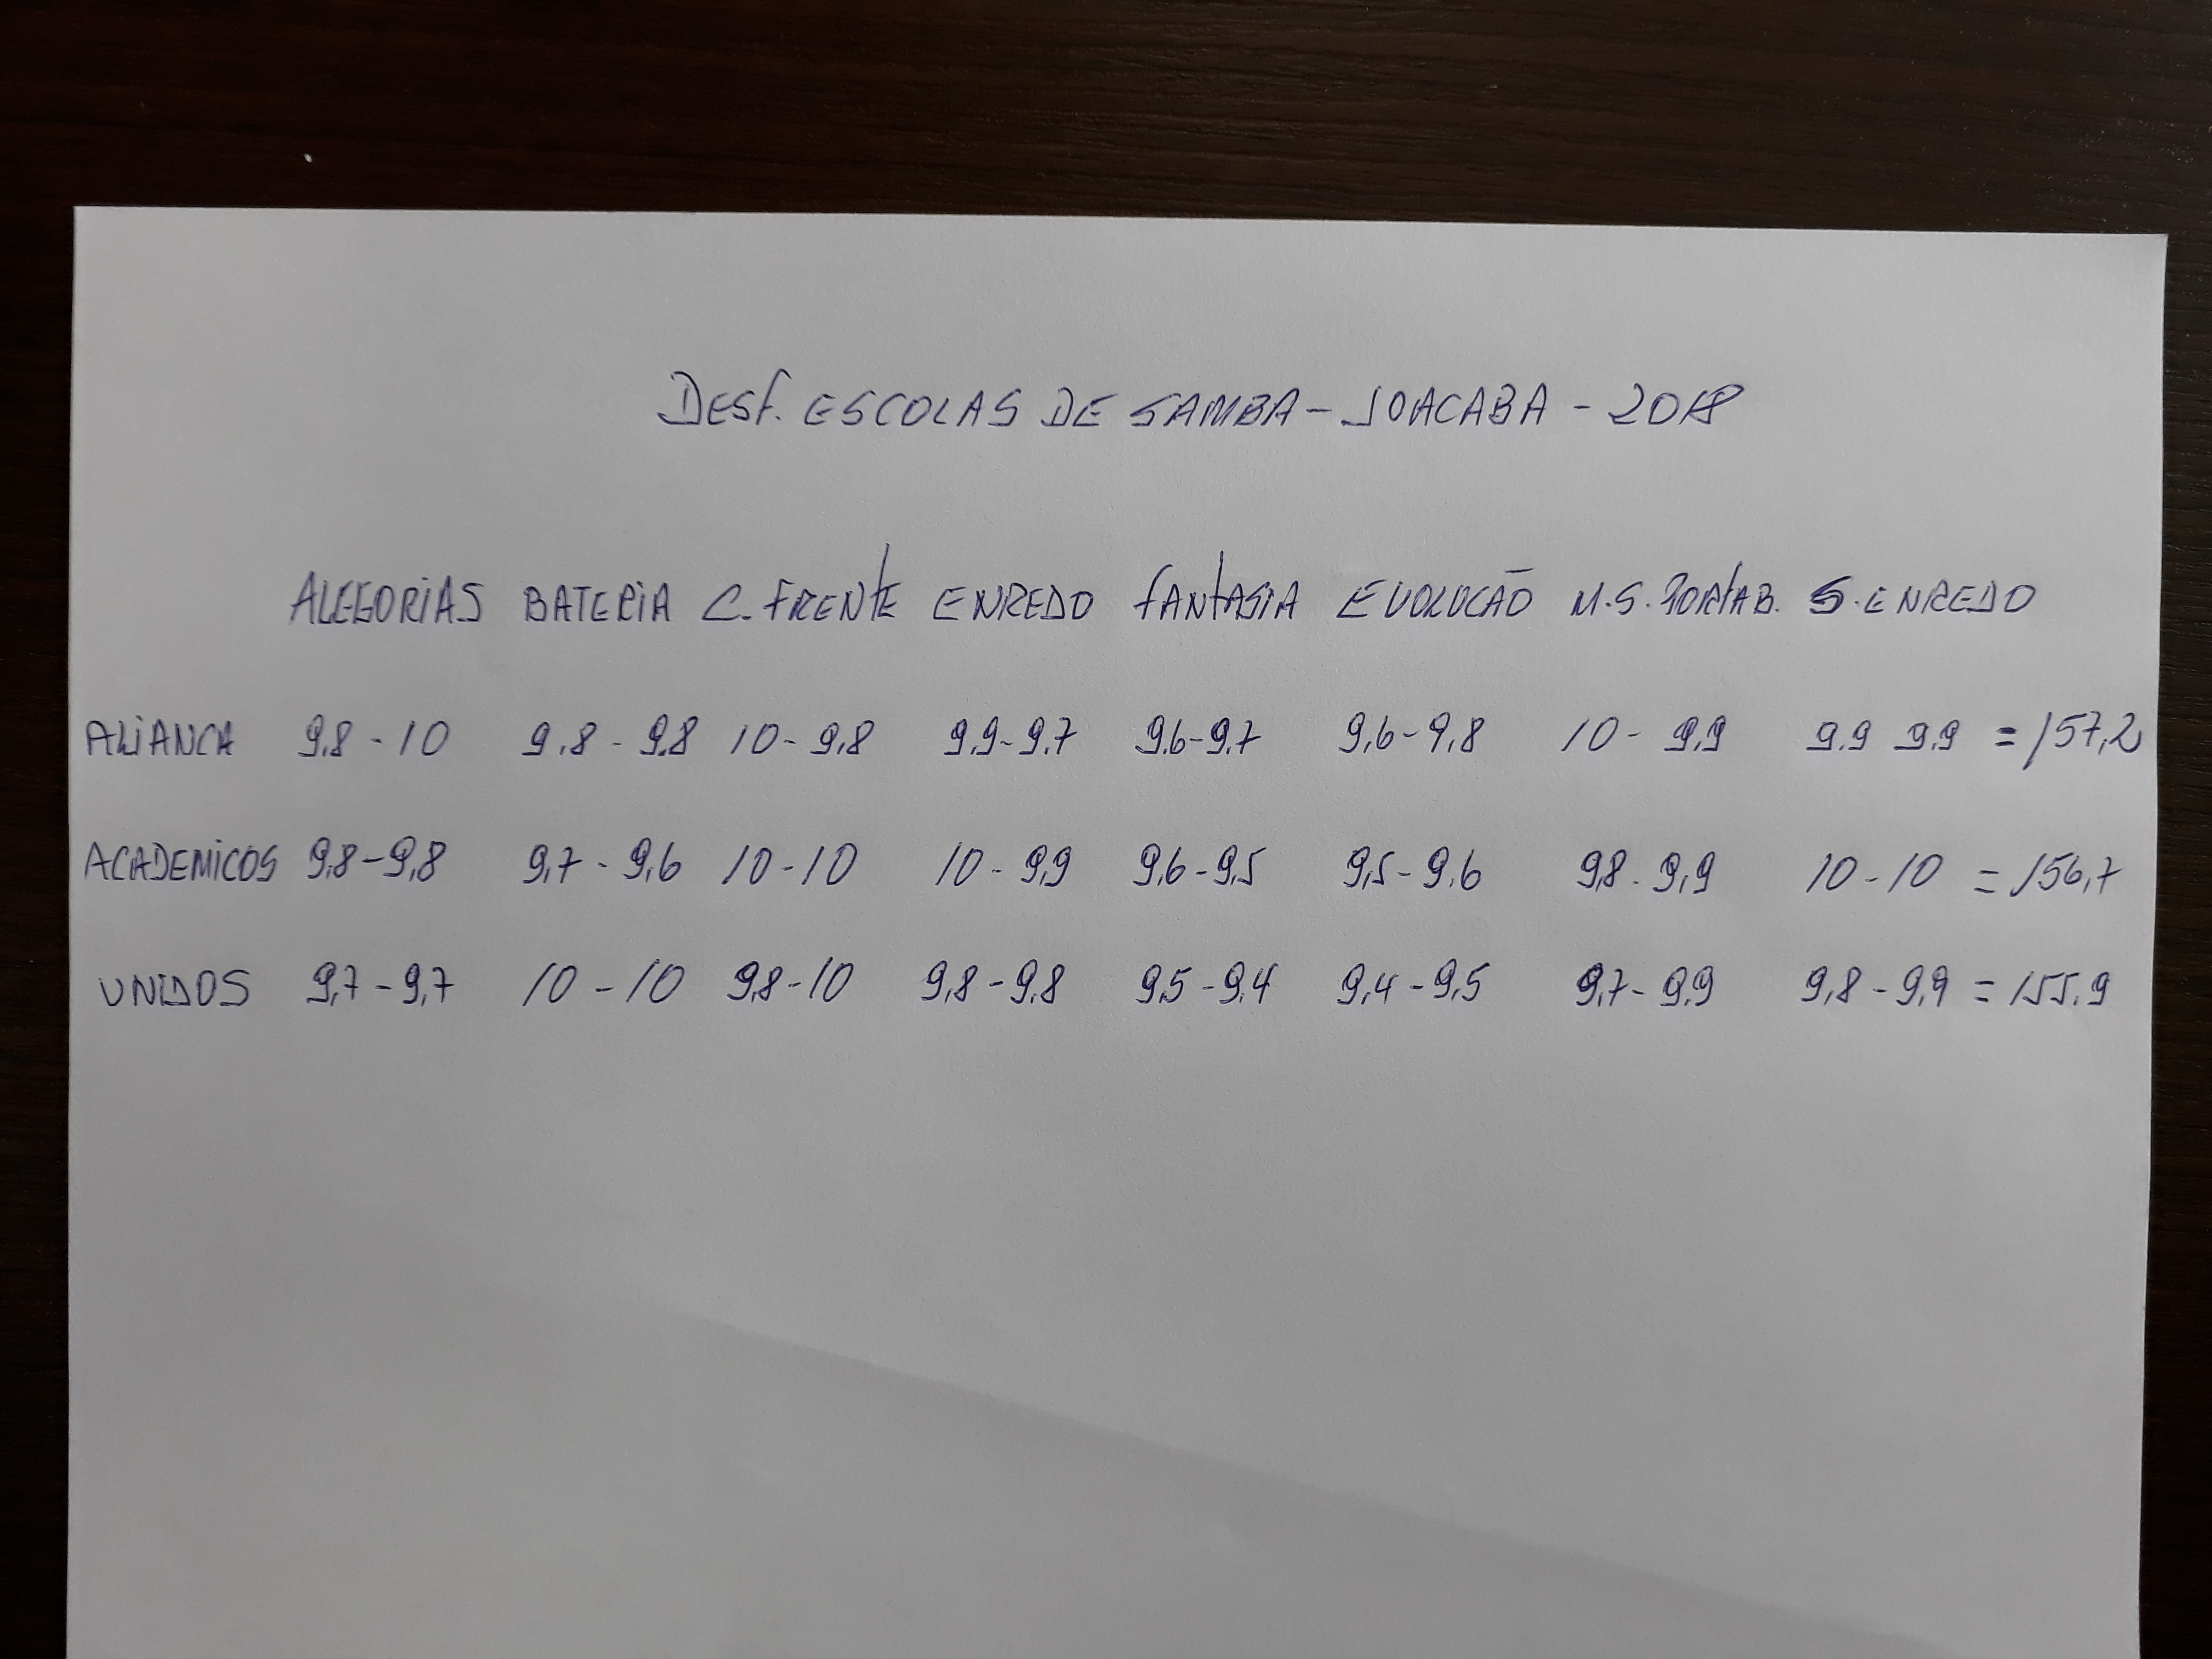 DESF. ESCOLAS DE SAMBA - JOACABA - 2018
ALEGORIAS BATERIA C. FRENTE ENREDO FANTASIA EVOLUCÃO M.S. PORTAB. S. ENREDO
ALIANCA 9.8 - 10 9.8 - 9.8 10 - 9,8 9.9 - 9.7 9.6 - 9,7 9,6 - 9,8 10 - 9,9 9.9 9.9 = 157,2
ACADEMICOS 9,8 - 9,8 9,7 - 9,6 10 - 10 10 - 9,9 9,6 - 9,5 9,5 - 9,6 9,8 - 9,9 10 - 10 = 156,7
UNIDOS 9,7 - 9,7 10 - 10 9,8 - 10 9,8 - 9,8 9,5 - 9,4 9,4 - 9,5 9,7 - 9,9 9,8 - 9,9 = 155.9